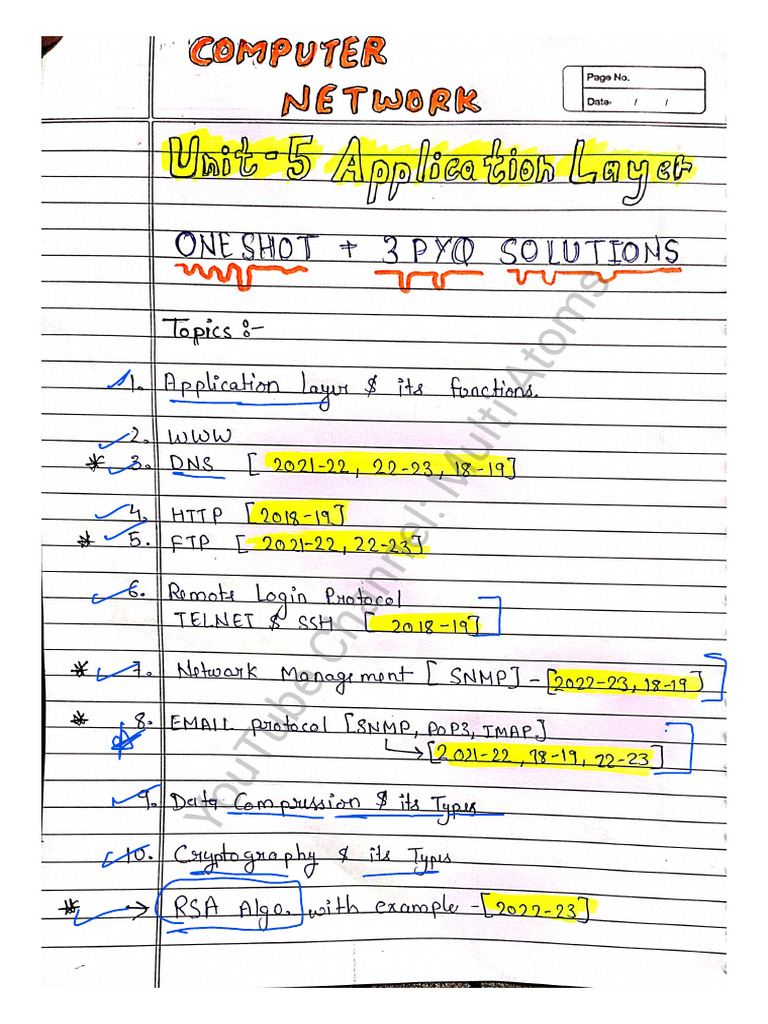 COMPUTER
NETWORK
Page No.
Date / /
Unit-5 Application Layer
ONE SHOT + 3 PYQ SOLUTIONS
Topics :-
1. Application Layer & its functions.
2. WWW
* 3. DNS [ 2021-22, 22-23, 18-19]
4. HTTP [2018-19]
* 5. FTP [ 2021-22, 22-23]
6. Remote Login Protocol
TELNET & SSH [ 2018-19]
* 7. Network Management [ SNMP] - [2022-23, 18-19]
* 8. EMAIL Protocol [SNMP, POP3, IMAP]
→ [2021-22, 18-19, 22-23]
9. Data Compression & its Types
10. Cryptography & its Types
* → RSA Algo. with example - [2022-23]
YouTube Channel: Multi Atoms